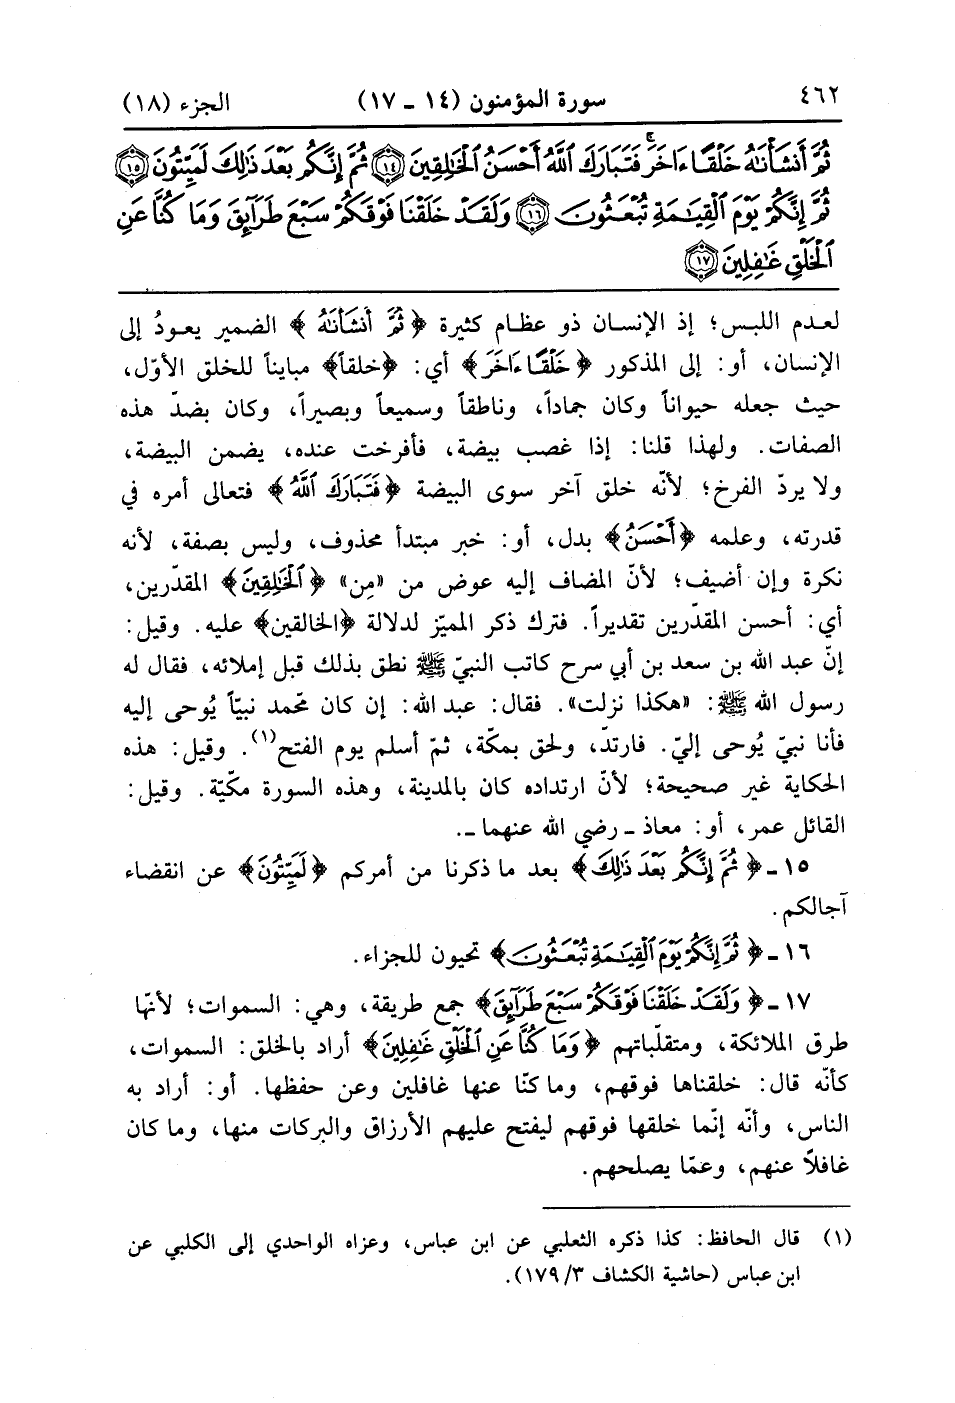 ٤٦٢ سورة المؤمنون (١٤ ـ ١٧) الجزء (١٨)
ثُمَّ أَنشَأْنَٰهُ خَلْقًا ءَاخَرَ ۚ فَتَبَارَكَ ٱللَّهُ أَحْسَنُ ٱلْخَٰلِقِينَ ١٤ ثُمَّ إِنَّكُم بَعْدَ ذَٰلِكَ لَمَيِّتُونَ ١٥
ثُمَّ إِنَّكُمْ يَوْمَ ٱلْقِيَٰمَةِ تُبْعَثُونَ ١٦ وَلَقَدْ خَلَقْنَا فَوْقَكُمْ سَبْعَ طَرَآئِقَ وَمَا كُنَّا عَنِ
ٱلْخَلْقِ غَٰفِلِينَ ١٧
لعدم اللبس؛ إذ الإنسان ذو عظام كثيرة ﴿ثُمَّ أَنشَأْنَٰهُ﴾ الضمير يعودُ إلى
الإنسان، أو: إلى المذكور ﴿خَلْقًا ءَاخَرَ﴾ أي: ﴿خلقاً﴾ مبايناً للخلق الأوّل،
حيث جعله حيواناً وكان جماداً، وناطقاً وسميعاً وبصيراً، وكان بضدّ هذه
الصفات. ولهذا قلنا: إذا غصب بيضة، فأفرخت عنده، يضمن البيضة،
ولا يردّ الفرخ؛ لأنّه خلق آخر سوى البيضة ﴿فَتَبَارَكَ ٱللَّهُ﴾ فتعالى أمره في
قدرته، وعلمه ﴿أَحْسَنُ﴾ بدل، أو: خبر مبتدأ محذوف، وليس بصفة، لأنه
نكرة وإن أضيف؛ لأنّ المضاف إليه عوض من «مِن» ﴿ٱلْخَٰلِقِينَ﴾ المقدّرين،
أي: أحسن المقدّرين تقديراً. فترك ذكر المميّز لدلالة ﴿الخالقين﴾ عليه. وقيل:
إنّ عبد الله بن سعد بن أبي سرح كاتب النبيّ ﷺ نطق بذلك قبل إملائه، فقال له
رسول الله ﷺ: «هكذا نزلت». فقال: عبد الله: إن كان محمد نبيّاً يُوحى إليه
فأنا نبيّ يُوحى إليّ. فارتدّ، ولحق بمكّة، ثمّ أسلم يوم الفتح(١). وقيل: هذه
الحكاية غير صحيحة؛ لأنّ ارتداده كان بالمدينة، وهذه السورة مكيّة. وقيل:
القائل عمر، أو: معاذ ـ رضي الله عنهما ـ.
١٥ ـ ﴿ثُمَّ إِنَّكُم بَعْدَ ذَٰلِكَ﴾ بعد ما ذكرنا من أمركم ﴿لَمَيِّتُونَ﴾ عن انقضاء
آجالكم.
١٦ ـ ﴿ثُمَّ إِنَّكُمْ يَوْمَ ٱلْقِيَٰمَةِ تُبْعَثُونَ﴾ تحيون للجزاء.
١٧ ـ ﴿وَلَقَدْ خَلَقْنَا فَوْقَكُمْ سَبْعَ طَرَآئِقَ﴾ جمع طريقة، وهي: السموات؛ لأنّها
طرق الملائكة، ومتقلّباتهم ﴿وَمَا كُنَّا عَنِ ٱلْخَلْقِ غَٰفِلِينَ﴾ أراد بالخلق: السموات،
كأنّه قال: خلقناها فوقهم، وما كنّا عنها غافلين وعن حفظها. أو: أراد به
الناس، وأنّه إنّما خلقها فوقهم ليفتح عليهم الأرزاق والبركات منها، وما كان
غافلاً عنهم، وعمّا يصلحهم.
(١) قال الحافظ: كذا ذكره الثعلبي عن ابن عباس، وعزاه الواحدي إلى الكلبي عن
ابن عباس (حاشية الكشاف ٣/ ١٧٩).